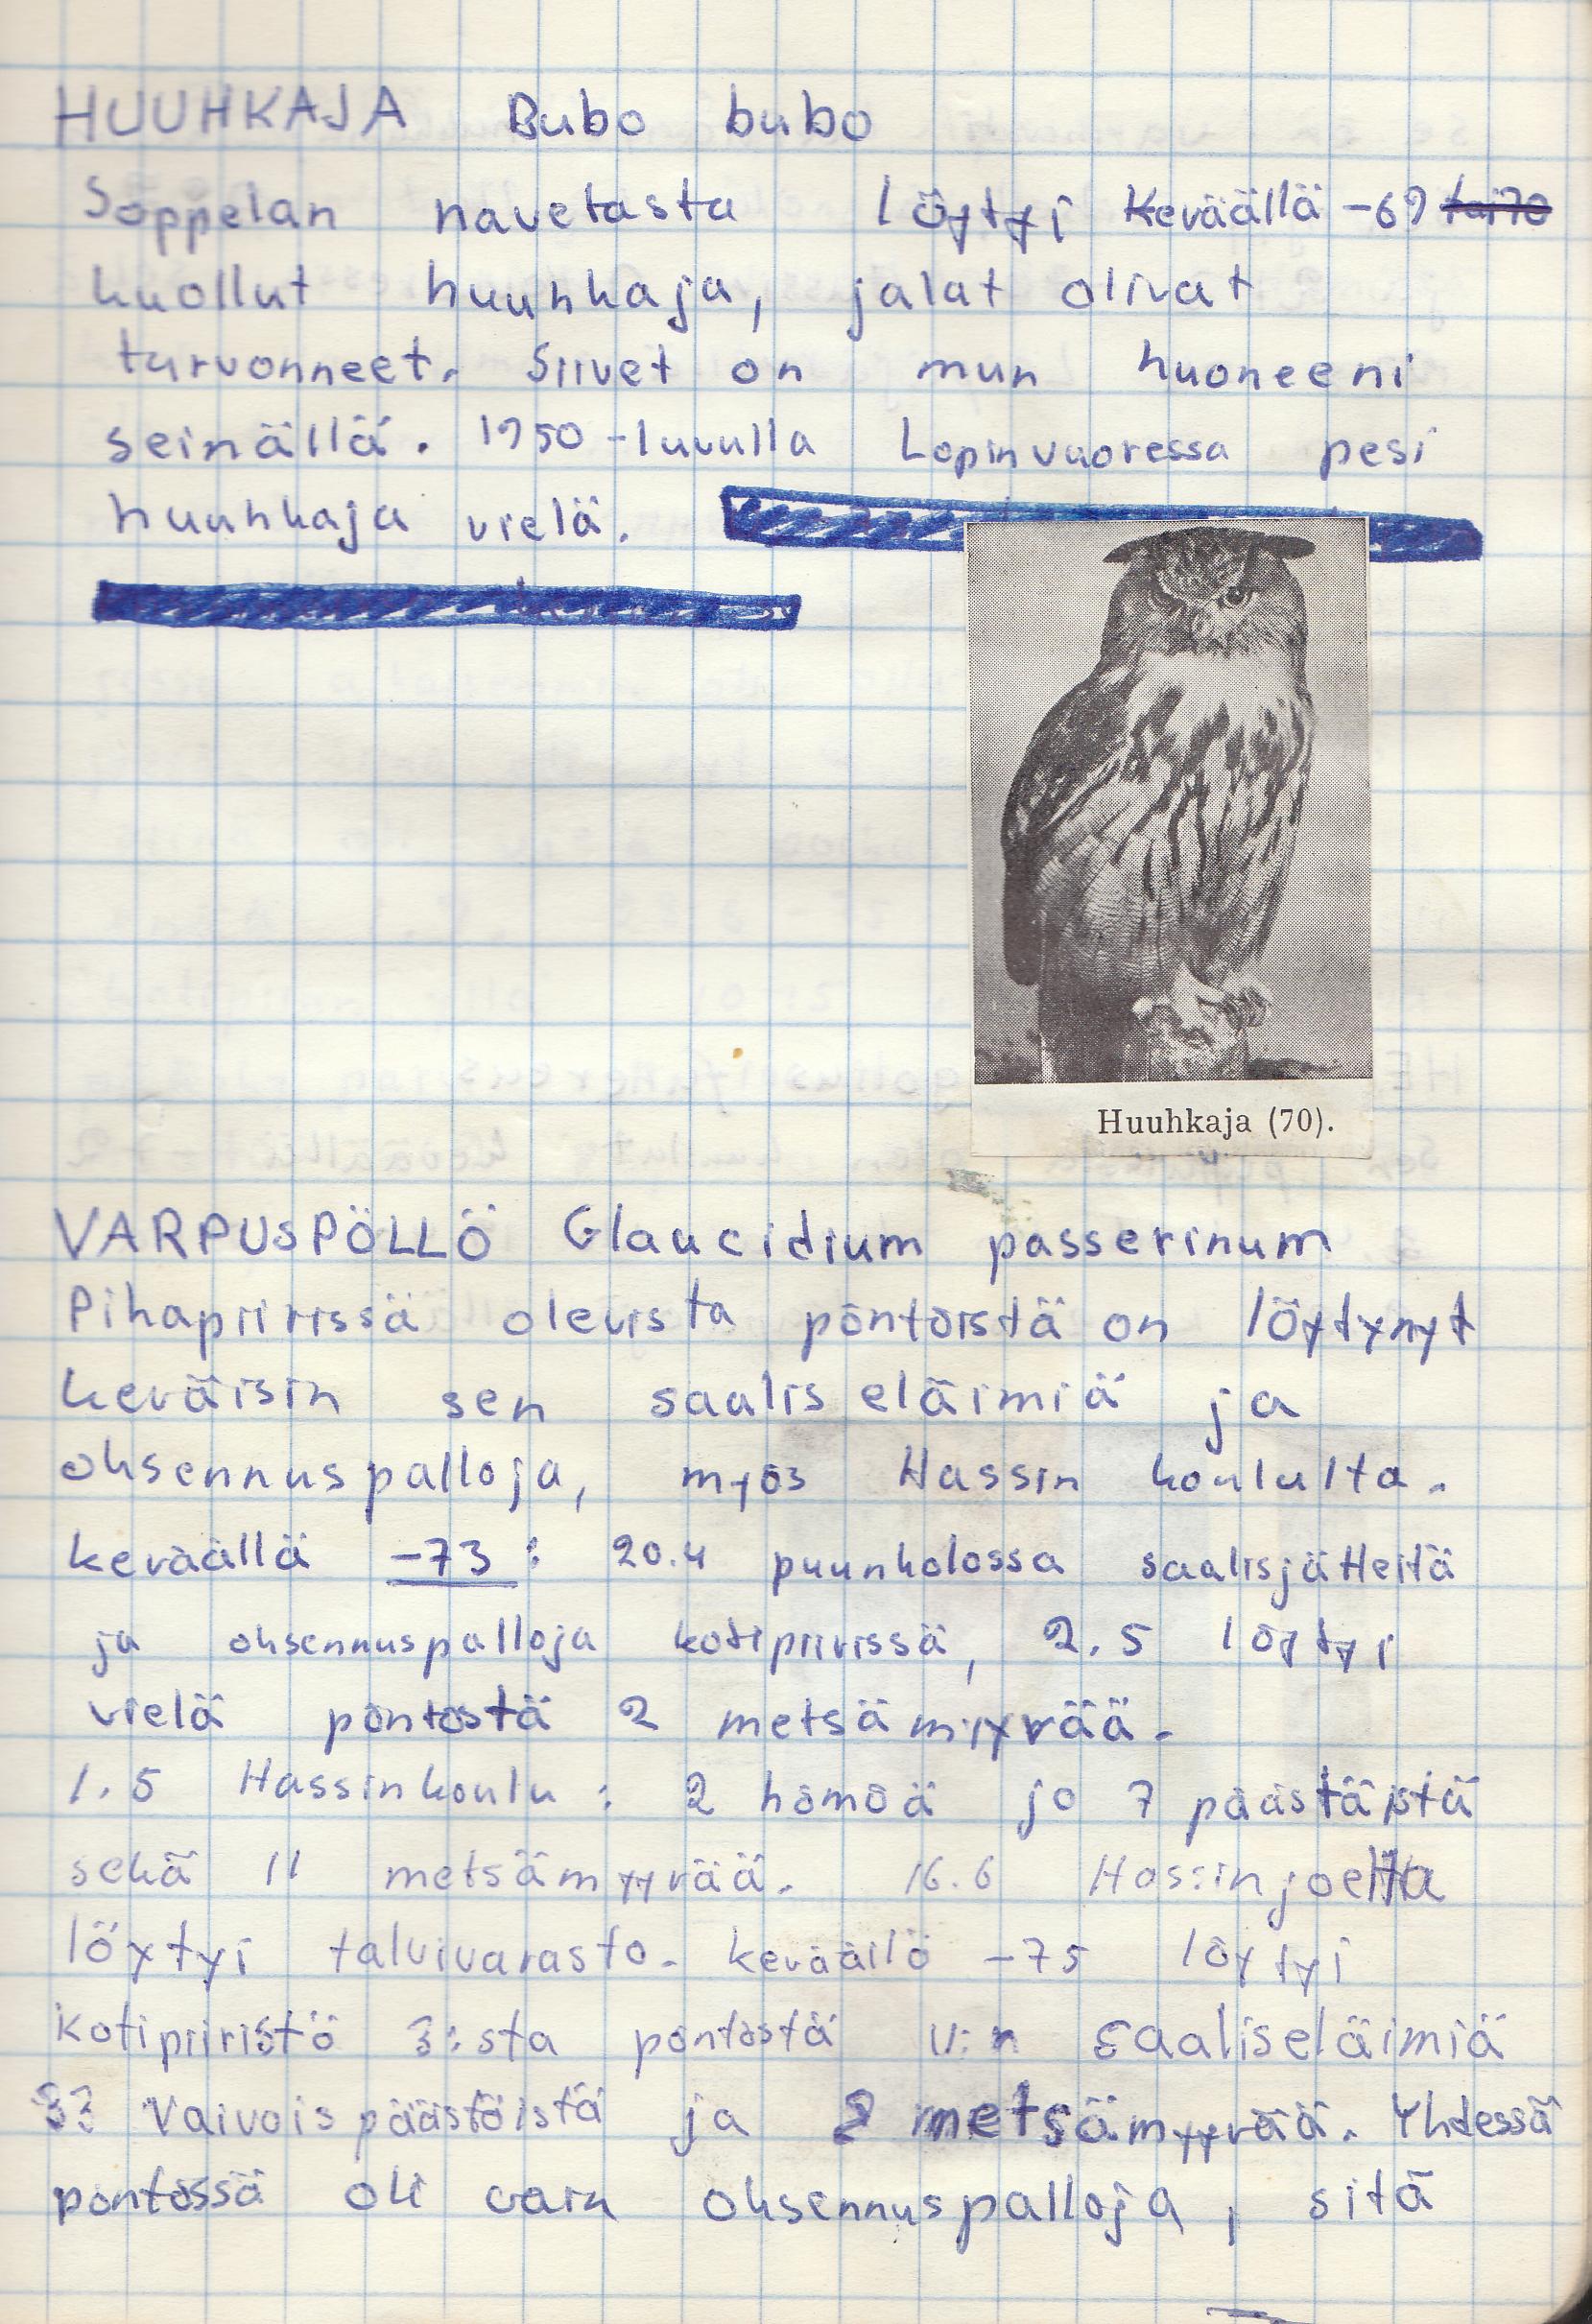 HUUHKAJA Bubo bubo
Soppelan navetasta löytyi Keväällä -69 tai 70
kuollut huuhkaja, jalat olivat
turvonneet. Siivet on mun huoneeni
seinällä. 1950-luvulla Lopinvuoressa pesi
huuhkaja vielä.
Huuhkaja (70).
VARPUSPÖLLÖ Glaucidium passerinum
Pihapiirissä olevista pöntöistä on löytynyt
keväisin sen saaliseläimiä ja
oksennuspalloja, myös Hassin koululta.
keväällä -73: 20.4 puunkolossa saalisjätteitä
ja oksennuspalloja kotipiirissä, 2.5 löytyi
vielä pöntöstä 2 metsämyyrää.
1.5 Hassinkoulu: 2 hömöä ja 7 päästäistä
sekä 11 metsämyyrää. 16.6 Hassinjoelta
löytyi talvivarasto. keväällä -75 löytyi
kotipiiristö 3:sta pöntöstä v:n saaliseläimiä
33 Vaivaispäästöistä ja 2 metsämyyrää. Yhdessä
pöntössä oli vain oksennuspalloja, sitä